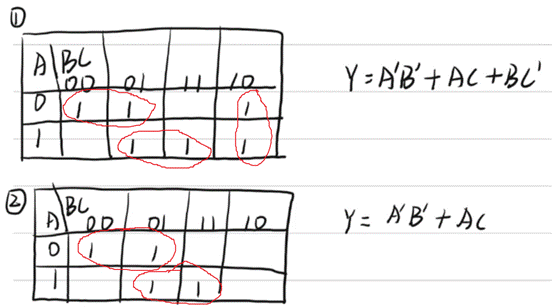 ①
A\BC 00 01 11 10
0 1 1 1
1 1 1 1
Y=A'B'+AC+BC'
②
A\BC 00 01 11 10
0 1 1
1 1 1
Y= A'B'+AC